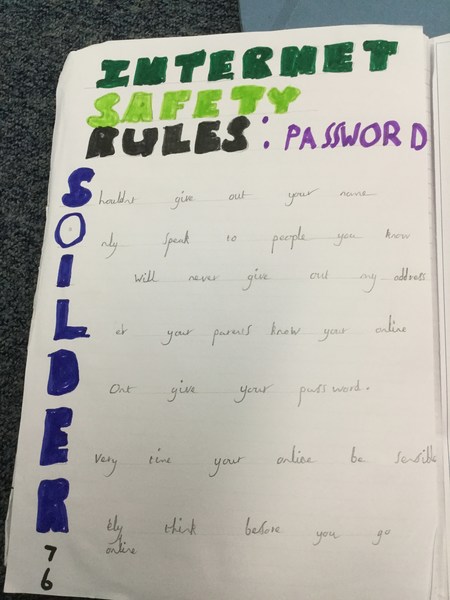 INTERNET
SAFETY
RULES: PASSWORD
Shouldnt give out your name
Only speak to people you know
I Will never give out my address
Let your parents know your online
DOnt give your password.
Every time your online be sensible
R think before you go
online
7
6